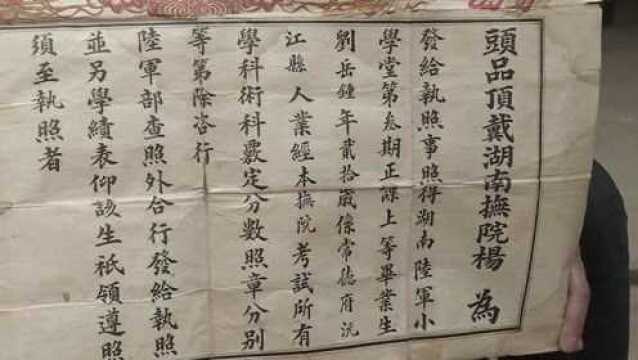 頭品頂戴湖南撫院楊　為
發給執照事照得湖南陸軍小
學堂第叁期正課上等畢業生
劉岳鍾年貳拾歲係常德府沅
江縣人業經本撫院考試所有
學科術科覈定分數照章分別
等第除咨行
陸軍部查照外合行發給執照
並另學績表仰該生祇領遵照
須至執照者